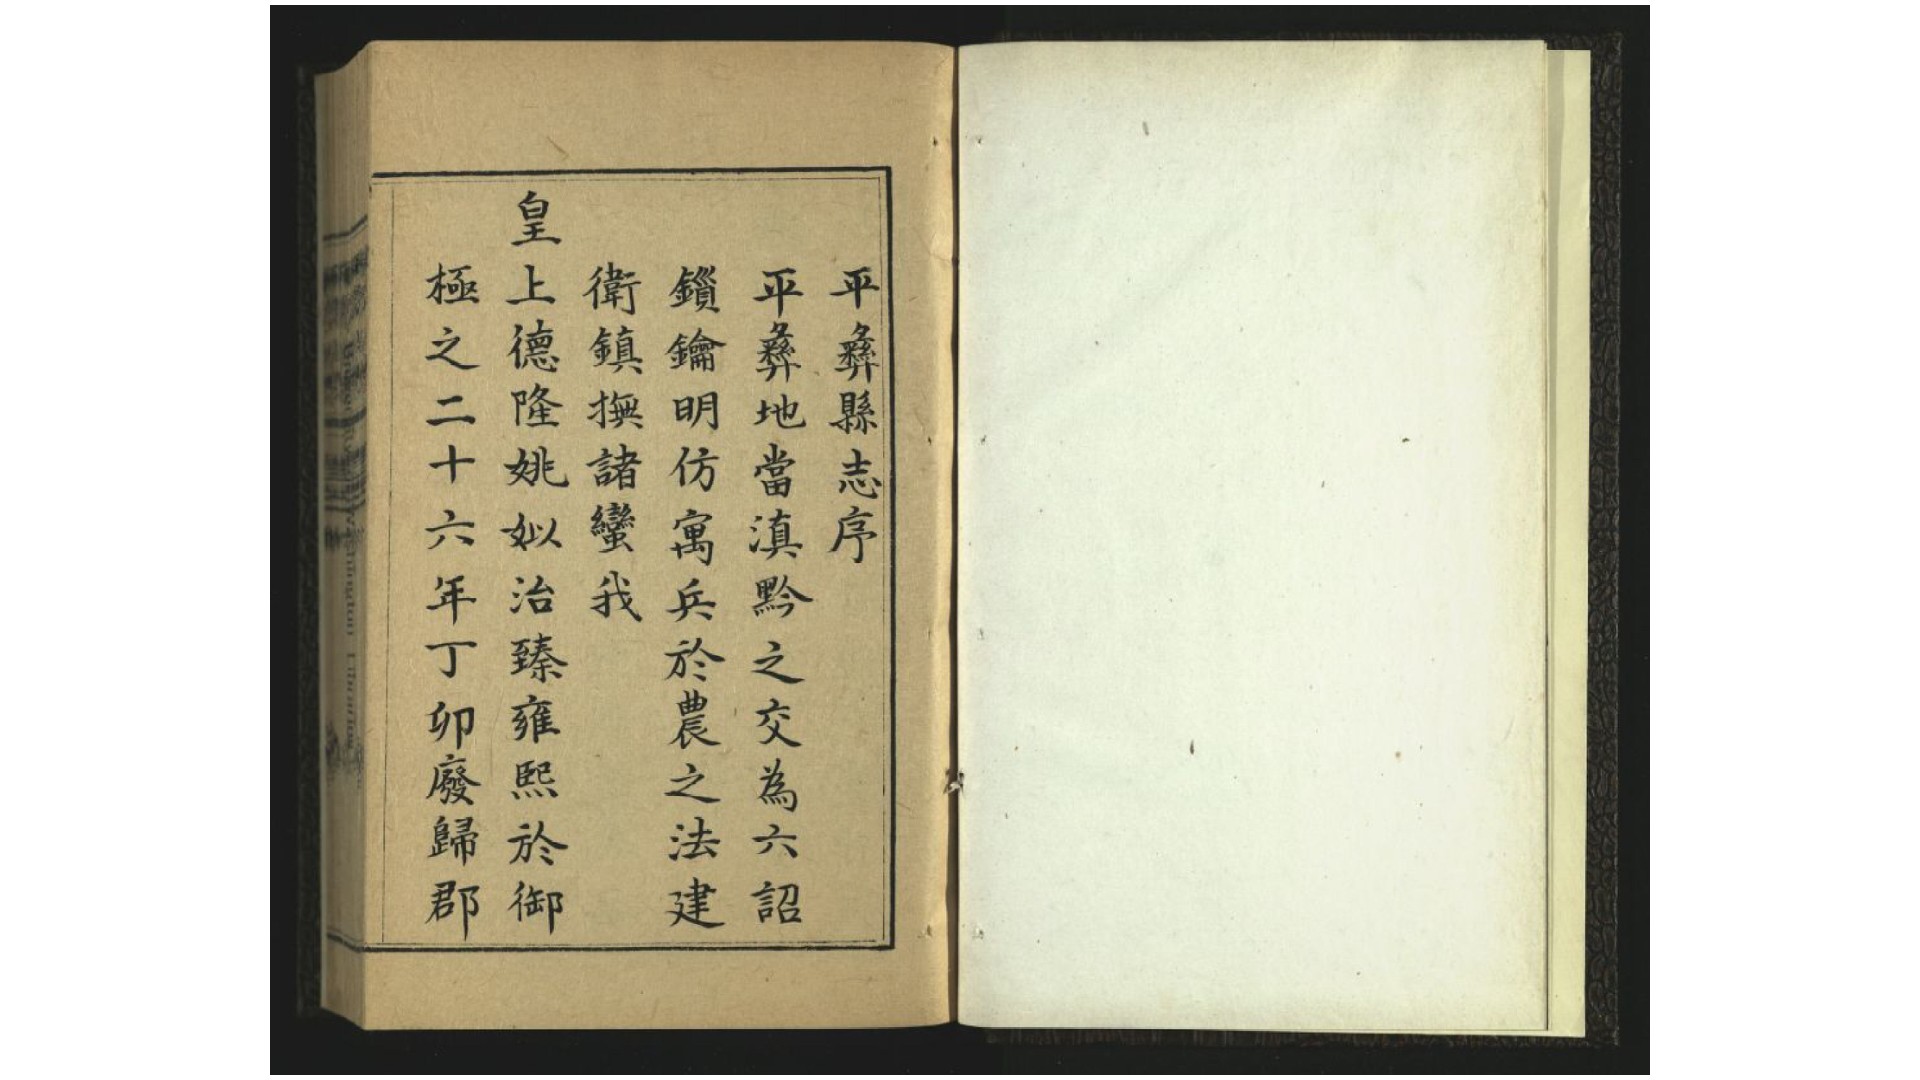 平彝縣志序
平彝地當滇黔之交為六詔
鎻鑰明仿寓兵於農之法建
衛鎮撫諸蠻我
皇上德隆姚姒治臻雍熙於御
極之二十六年丁卯廢歸郡